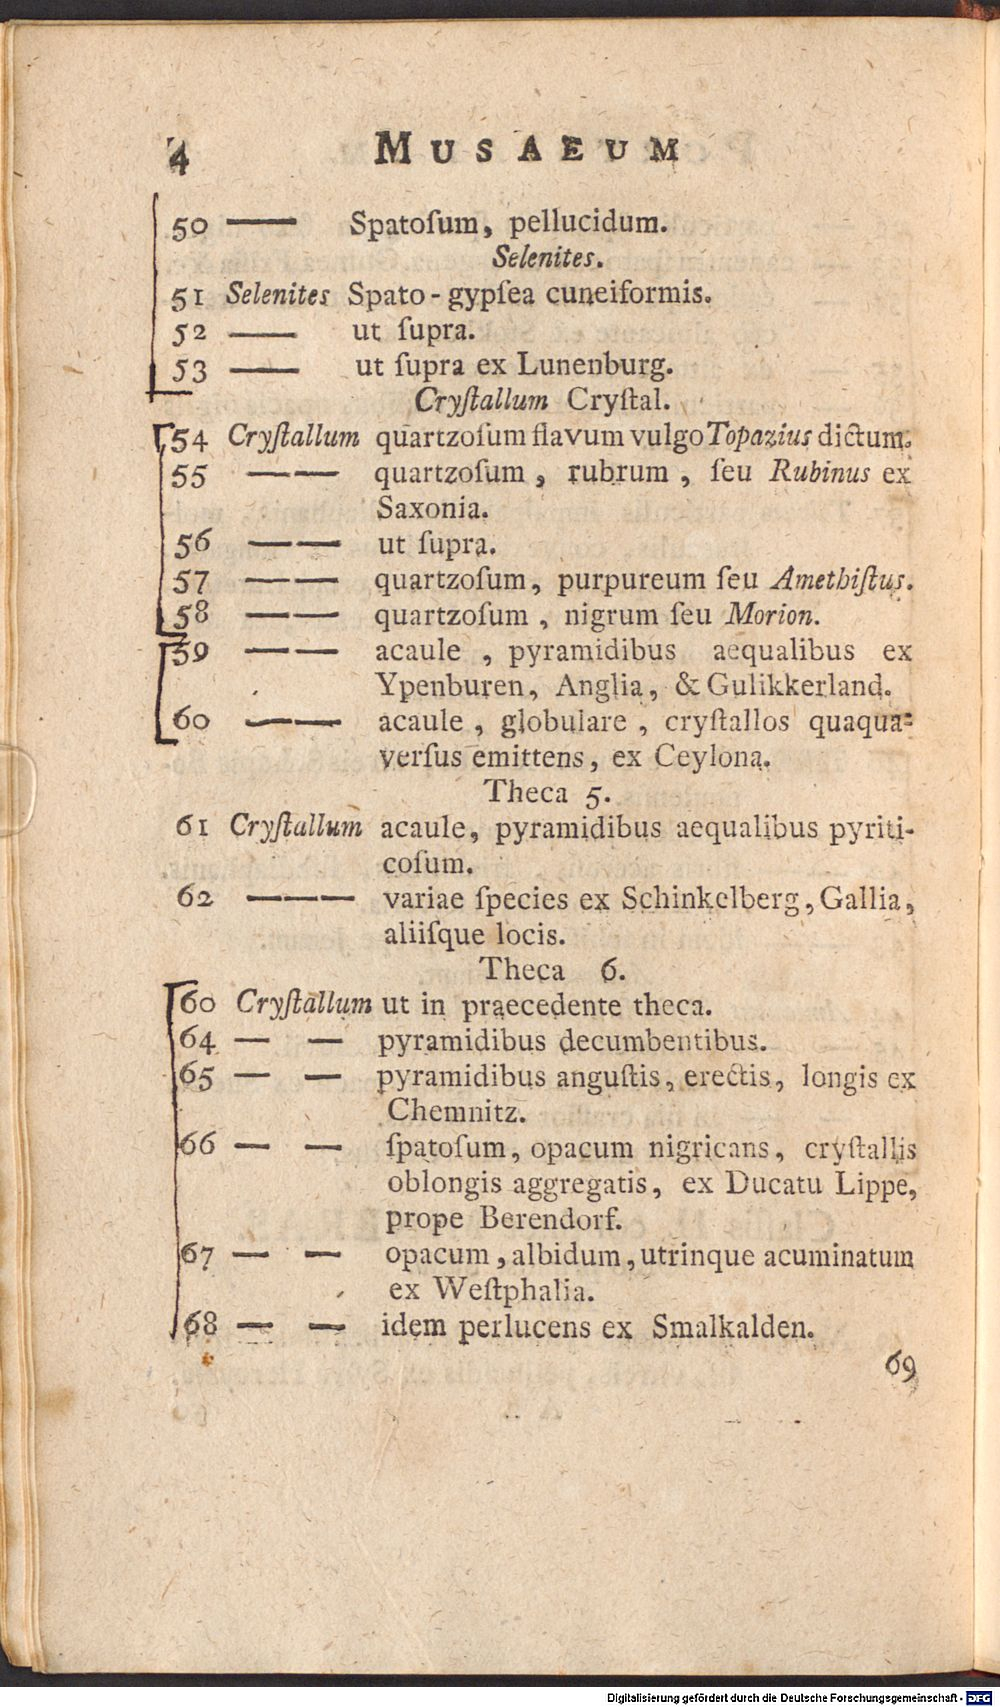 4 MUSAEUM
50 —— Spatoſum, pellucidum.
Selenites.
51 Selenites Spato-gypſea cuneiformis.
52 —— ut ſupra.
53 —— ut ſupra ex Lunenburg.
Cryſtallum Cryſtal.
54 Cryſtallum quartzoſum flavum vulgo Topazius dictum.
55 —— quartzoſum, rubrum, ſeu Rubinus ex
Saxonia.
56 —— ut ſupra.
57 —— quartzoſum, purpureum ſeu Amethiſtus.
58 —— quartzoſum, nigrum ſeu Morion.
59 —— acaule, pyramidibus aequalibus ex
Ypenburen, Anglia, & Gulikkerland.
60 —— acaule, globulare, cryſtallos quaqua-
verſus emittens, ex Ceylona.
Theca 5.
61 Cryſtallum acaule, pyramidibus aequalibus pyriti-
coſum.
62 ——— variae ſpecies ex Schinkelberg, Gallia,
aliiſque locis.
Theca 6.
60 Cryſtallum ut in praecedente theca.
64 — — pyramidibus decumbentibus.
65 — — pyramidibus anguſtis, erectis, longis ex
Chemnitz.
66 — — ſpatoſum, opacum nigricans, cryſtallis
oblongis aggregatis, ex Ducatu Lippe,
prope Berendorf.
67 — — opacum, albidum, utrinque acuminatum
ex Weſtphalia.
68 — — idem perlucens ex Smalkalden.
69
Digitalisierung gefördert durch die Deutsche Forschungsgemeinschaft - DFG